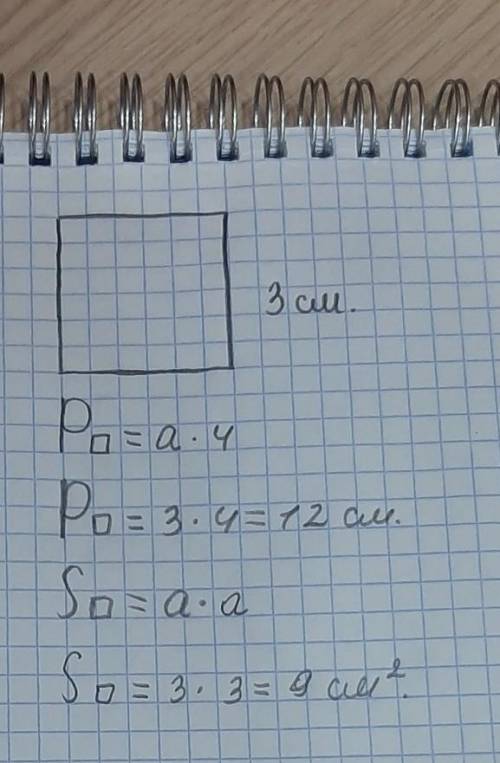 3 см.
P□ = a · 4
P□ = 3 · 4 = 12 см.
S□ = a · a
S□ = 3 · 3 = 9 см².